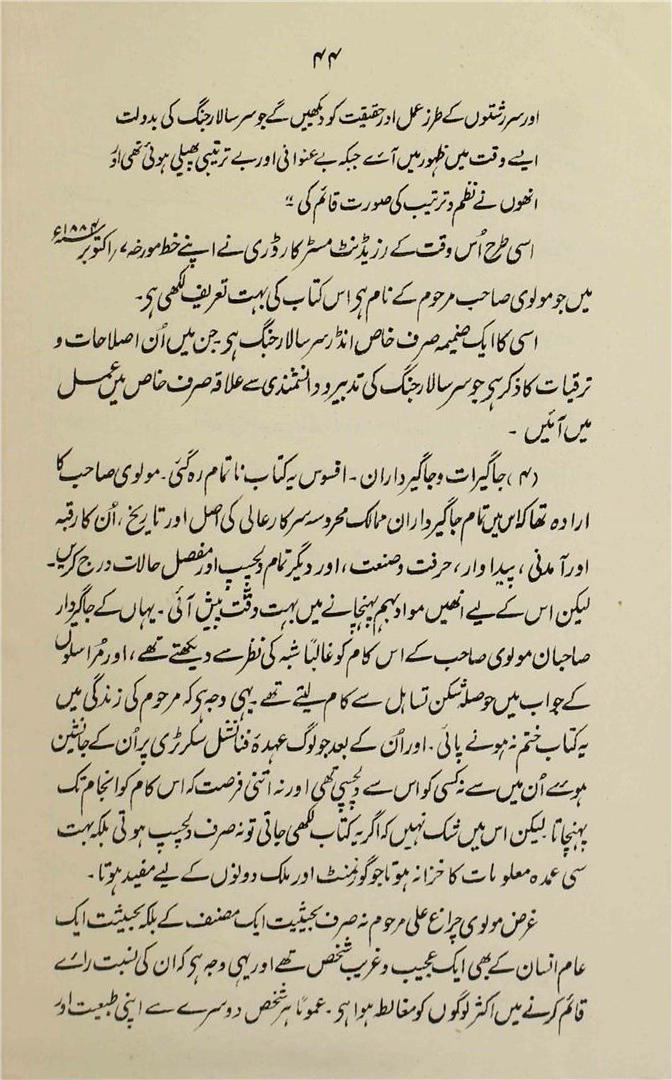 ۴۴
اور سررشتوں کے طرز عمل اور حقیقت کو دیکھیں گے جو سر سالار جنگ کی بدولت
ایسے وقت میں ظہور میں آے جبکہ بے عنوانی اور بے ترتیبی پھیلی ہوئی تھی اور
انھوں نے نظم و ترتیب کی صورت قائم کی "
اسی طرح اُس وقت کے رزیڈنٹ مسٹر کارڈری نے اپنے خط مورخہ ۷ اکتوبر ۱۸۸۴ء
میں جو مولوی صاحب مرحوم کے نام ہی اس کتاب کی بہت تعریف لکھی ہی۔
اسی کا ایک ضمیمہ صرف خاص انڈر سر سالار جنگ ہی۔ جن میں اُن اصلاحات و
ترقیات کا ذکر ہی جو سر سالار جنگ کی تدبیر و دانشمندی سے علاقہ صرف خاص میں عمل
میں آئیں ۔
(۴) جاگیرات و جاگیرداران ۔ افسوس یہ کتاب ناتمام رہ گئی۔ مولوی صاحب کا
ارادہ تھا کہ اس میں تمام جاگیرداران ممالک محروسہ سرکار عالی کی اصل اور تاریخ ، اُن کا رقبہ
اور آمدنی ، پیداوار ، حرفت و صنعت ، اور دیگر تمام دلچسپ اور مفصل حالات درج کریں۔
لیکن اس کے لیے انھیں مواد بہم پہنچانے میں بہت دقت پیش آئی ۔ یہاں کے جاگیردار
صاحبان مولوی صاحب کے اس کام کو غالباً شبہ کی نظر سے دیکھتے تھے ، اور مُراسلوں
کے جواب میں حوصلہ شکن تساہل سے کام لیتے تھے یہی وجہ ہی کہ مرحوم کی زندگی میں
یہ کتاب ختم نہ ہونے پائی ۔ اور اُن کے بعد جو لوگ عہدۂ فنانشل سکرٹری پر اُن کے جانشین
ہوے اُن میں سے نہ کسی کو اس سے دلچسپی تھی اور نہ اتنی فرصت کہ اس کام کو انجام تک
پہنچاتا۔ لیکن اس میں شک نہیں کہ اگر یہ کتاب لکھی جاتی تو نہ صرف دلچسپ ہوتی بلکہ بہت
سی عمدہ معلومات کا خزانہ ہوتا جو گورنمنٹ اور ملک دونوں کے لیے مفید ہوتا ۔
غرض مولوی چراغ علی مرحوم نہ صرف بحیثیت ایک مصنف کے بلکہ بحیثیت ایک
عام انسان کے بھی ایک عجیب و غریب شخص تھے اور یہی وجہ ہی کہ ان کی نسبت راے
قائم کرنے میں اکثر لوگوں کو مغالطہ ہوا ہی ۔ عموماً ہر شخص دوسرے سے اپنی طبیعت اور